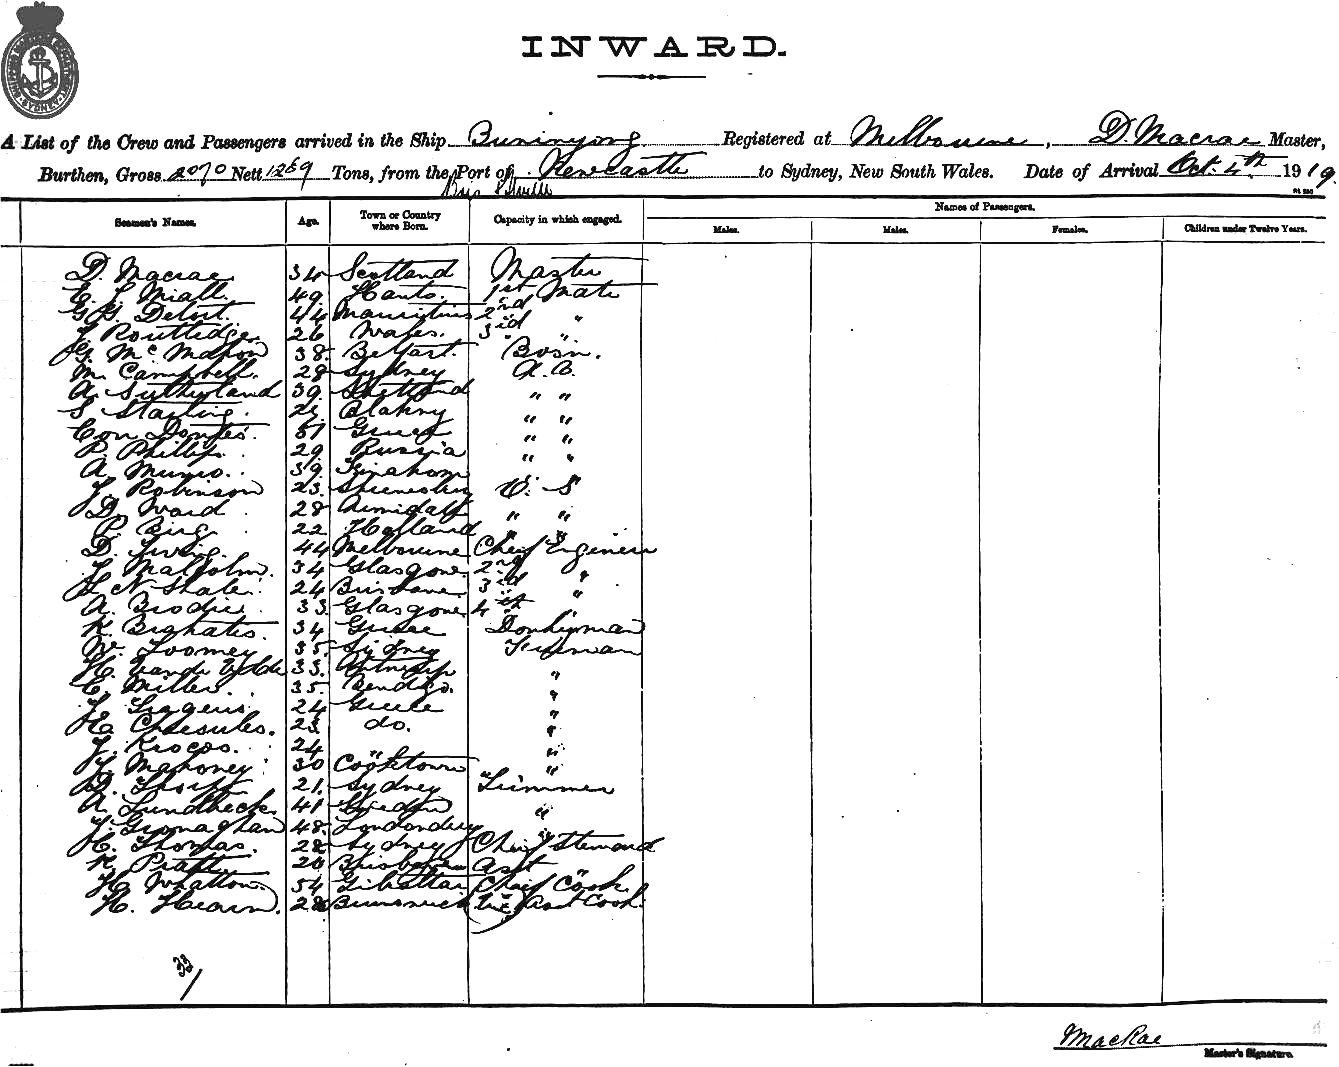 INWARD.
A List of the Crew and Passengers arrived in the Ship Buninyong Registered at Melbourne, D. Macrae Master,
Burthen, Gross 2070 Nett 1269 Tons, from the Port of Newcastle to Sydney, New South Wales. Date of Arrival Oct. 4th 1919.
Seamen's Names. Age. Town or Country where Born. Capacity in which engaged. Names of Passengers.
Males. Males. Females. Children under Twelve Years.
D. Macrae 34 Scotland Master
E. J. Miall. 49. Hants. 1st Mate
44 Mauritius 2nd "
J Routtidge. 26 Wales. 3rd "
G. McMahon 38. Belfast. Bosn.
M. Campbell. 28 Sydney A.B.
A. Sutherland 39. Shetland " "
S Starling. Blakny " "
51 Greece " "
P. Phillips. 29 Russia " "
A. Munro. 39.
J. Robinson 23. O. S
D. Ward 28 Armidale " "
P. Bing. 22 Holland " "
D. Irving. 44 Melbourne Chief Engineer
J. Malcolm. 34 Glasgow. 2nd "
N. Shale. 24 Brisbane 3rd "
A. Brodie 33. Glasgow 4th "
K. 34 Greece Donkeyman
W. Toomey 35. Sydney Fireman
H. Vande Velde 33. Antwerp "
C. Miller. 35. Bendigo. "
J. 24 Greece "
23. do. "
J. Krocos. 24 " "
J. Mahoney 30 Cooktown "
D. Thorpe 21. Sydney Trimmer
A. Lundbeck. 41 Sweden "
J. Gronaghan 48. Londonderry "
C. Thomas. 28 Sydney Chief Steward
K. Pratt 20 Brisbane Asst "
H. Whatton. 54 Gibraltar Chief Cook.
H. Hearn. 28 Brunswick Asst Cook.
33
MacRae
Master's Signature.